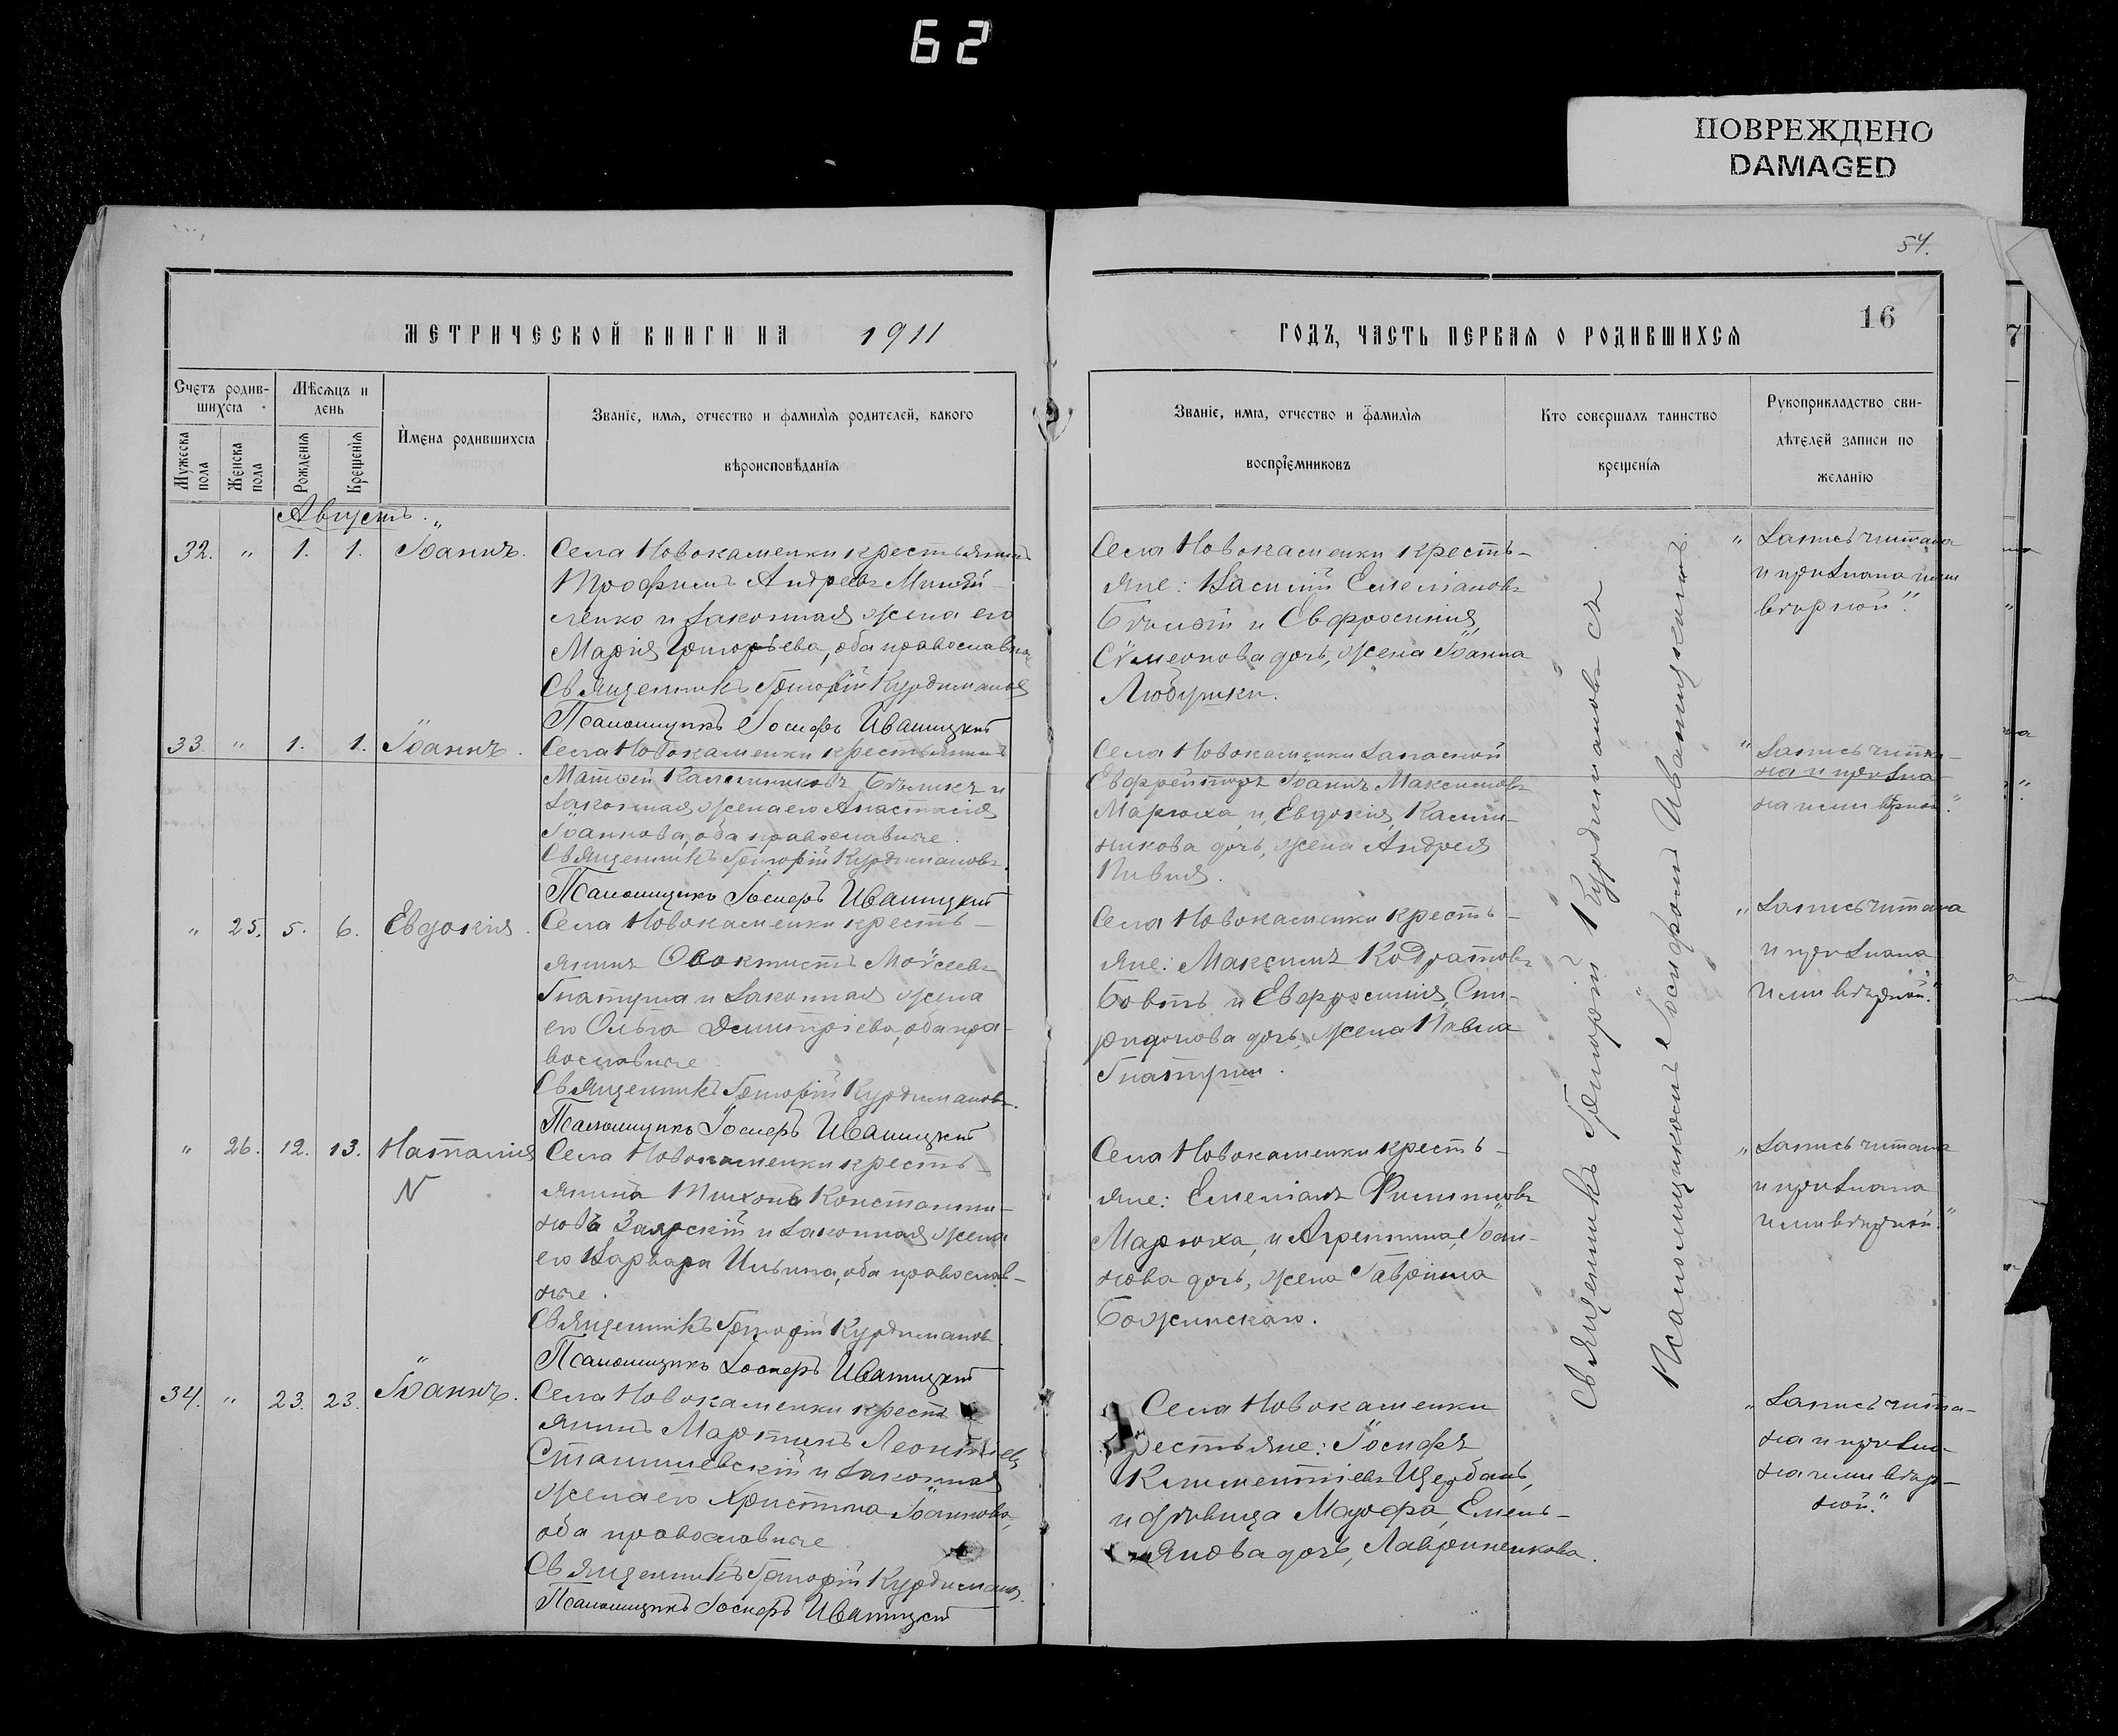 62
ПОВРЕЖДЕНО
DAMAGED
54.
16
7
МЕТРИЧЕСКОЙ КНИГИ НА 1911
ГОДЪ, ЧАСТЬ ПЕРВАЯ О РОДИВШИХСЯ
Счетъ родив-
шихся
Мѣсяцъ и
день
Имена родившихся
Званіе, имя, отчество и фамилія родителей, какого
вѣроисповѣданія
Мужеска
пола
Женска
пола
Рожденія
Крещенія
Званіе, имя, отчество и фамилія
воспріемниковъ
Кто совершалъ таинство
крещенія
Рукоприкладство сви-
дѣтелей записи по
желанію
Августъ.
32. " 1. 1. Іоаннъ.
Села Новокаменки крестьянинъ
Трофимъ Андреевъ
ленко и законная жена его
Марія Григорьева, оба православные
Священникъ Григорій Курдимановъ
Псаломщикъ Іосифъ Иваницкій
Села Новокаменки кресть-
яне: Василій Емеліановъ
и Евфросинія
Сѵмеонова дочь, жена Іоанна
Любушки.
" Запись читана
и признана ими
вѣрной".
33. " 1. 1. Іоаннъ.
Села Новокаменки крестьянинъ
Матѳей Каллиниковъ Бѣликъ и
законная жена его Анастасія
Іоаннова, оба православные.
Священникъ Григорій Курдимановъ.
Псаломщикъ Іосифъ Иваницкій
Села Новокаменки запасной
Ефрейторъ Іоаннъ Максимовъ
Марюха и, Евдокія, Калли-
никова дочь, жена Андрея
Кивія.
" Запись чита-
на и призна-
на ими вѣрной."
" 25. 5. 6. Евдокія.
Села Новокаменки кресть-
янинъ Ѳеоктистъ Моѵсеевъ
Гнатуша и законная жена
его Ольга Димитріева, оба пра-
вославные.
Священникъ Григорій Курдимановъ.
Псаломщикъ Іосифъ Иваницкій
Села Новокаменки кресть-
яне: Максимъ Кодратовъ
Бовтъ и Евфросинія, Спи-
ридонова дочь, жена Павла
Гнатуши.
" Запись читана
и признана
ими вѣрной."
" 26. 12. 13. Наталія
N
Села Новокаменки кресть-
янина Тихонъ Константи-
новъ Заярскій и законная жена
его Варвара Ильина, оба православ-
ные.
Священникъ Григорій Курдимановъ
Псаломщикъ Іосифъ Иваницкій
Села Новокаменки кресть-
яне: Емеліанъ Филипповъ
Марюха, и Агрепина, Іоан-
нова дочь, жена Гавріила
Божинскаго.
" Запись читана
и признана
ими вѣрной."
34. " 23. 23. Іоаннъ.
Села Новокаменки крестъ
янинъ Мартинъ Леонтіевъ
Станишевскій и законная
жена его Христина Іоаннова,
оба православные.
Священникъ Григорій Курдимановъ.
Псаломщикъ Іосифъ Иваницкій
Села Новокаменки
рестьяне: Іосифъ
Климентіевъ Щербань,
и дѣвица Марфа, Емель-
янова дочь, Лавриненкова.
" Запись чита-
на и призна-
на ими вѣр-
ной."
Священникъ Григорій Курдимановъ съ
Псаломщикомъ Іосифомъ Иваницкимъ.